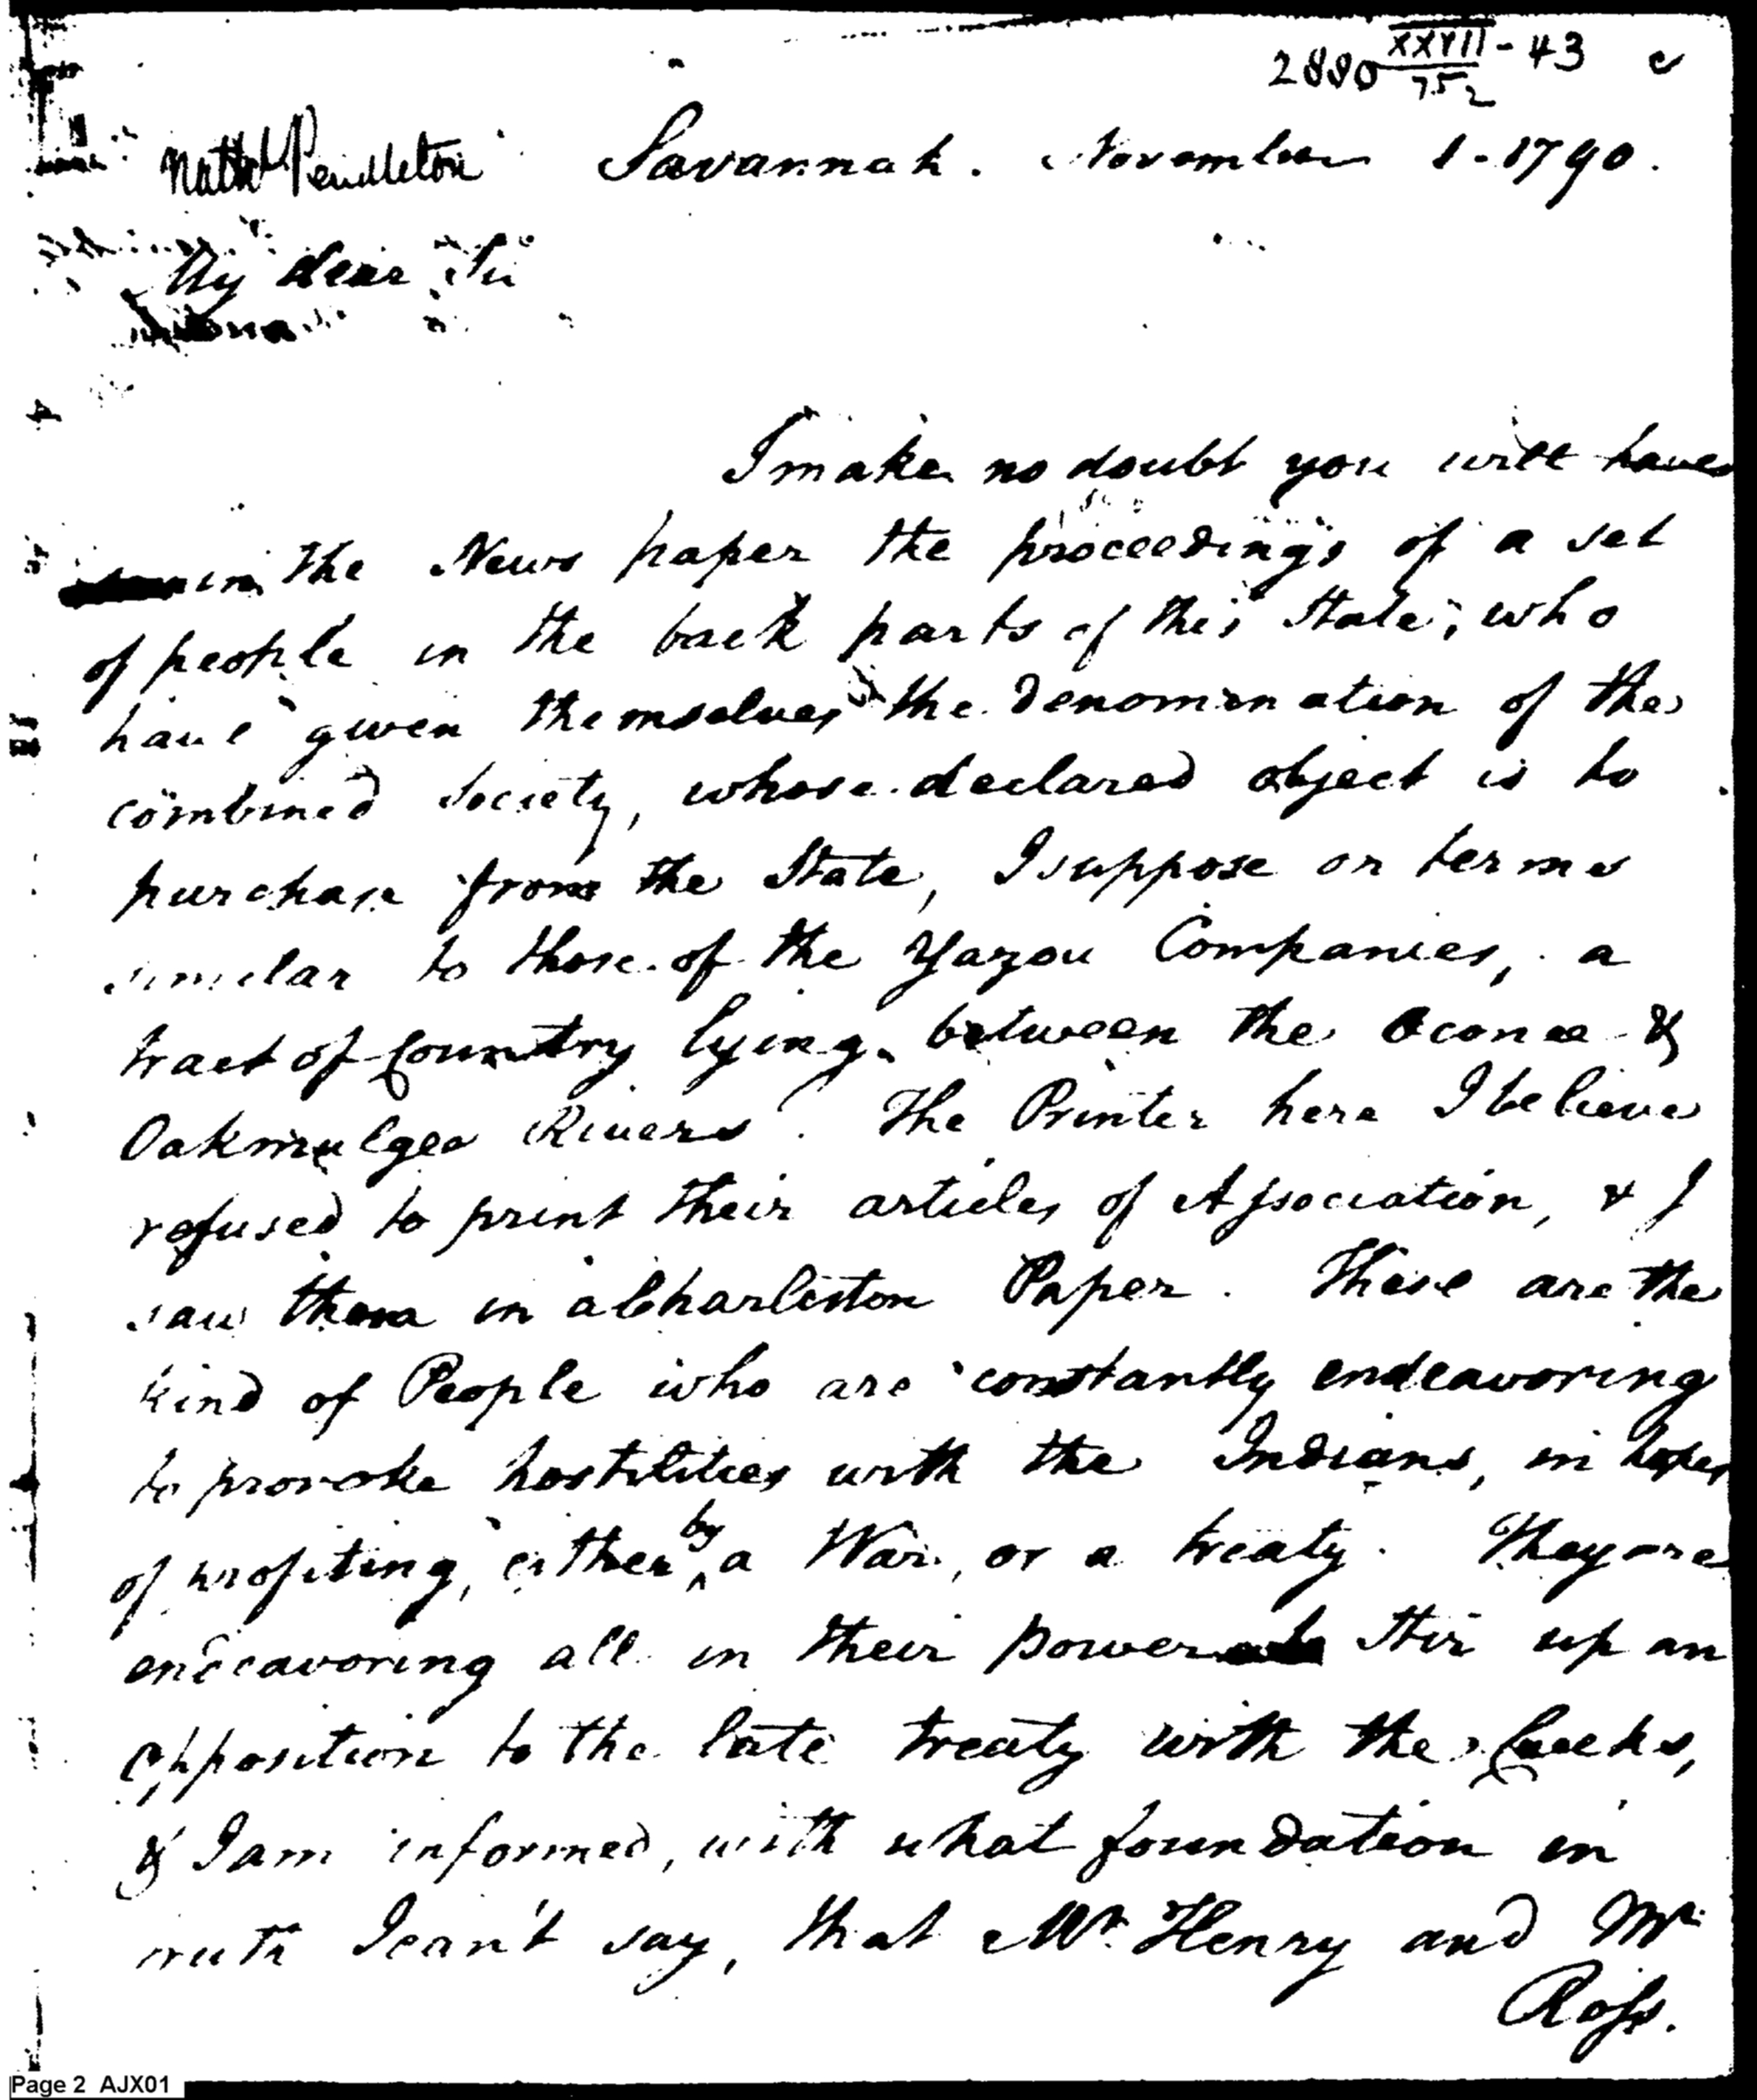 2880 XXVII/752 - 43
Nathl Pendleton Savannah. November 1. 1790.
My dear Sir
I make no doubt you will have
seen in the News paper the proceedings of a set
of people in the back parts of this State, who
have given themselves the Denomination of the
combined Society, whose declared object is to
purchase from the State, I suppose on terms
similar to those of the Yazou Companies, a
tract of Country lying between the Oconee &
Oakmulgee Rivers. The Printer here I believe
refused to print their articles of Association, & I
saw them in a Charleston Paper. These are the
kind of People who are constantly endeavoring
to provoke hostilities with the Indians, in hopes
of profiting, either by a War, or a treaty. They are
endeavoring all in their power to Stir up an
opposition to the late treaty with the Creeks,
& I am informed, with what foundation in
truth I can't say, that Mr. Henry and Mr.
Ross.
Page 2 AJX01